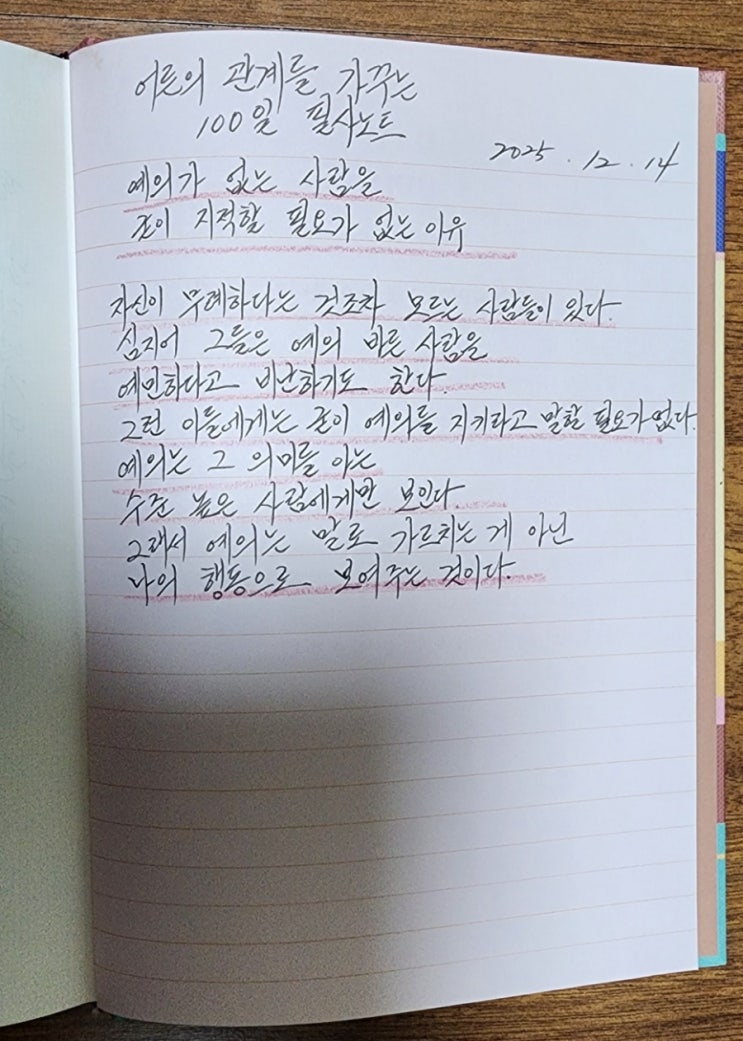 어른의 관계를 가꾸는
100일 필사노트
2025. 12. 14
예의가 없는 사람을
굳이 지적할 필요가 없는 이유
자신이 무례하다는 것조차 모르는 사람들이 있다.
심지어 그들은 예의 바른 사람을
예민하다고 비난하기도 한다.
그런 이들에게는 굳이 예의를 지키라고 말할 필요가 없다.
예의는 그 의미를 아는
수준 높은 사람에게만 보인다.
그래서 예의는 말로 가르치는 게 아닌
나의 행동으로 보여주는 것이다.